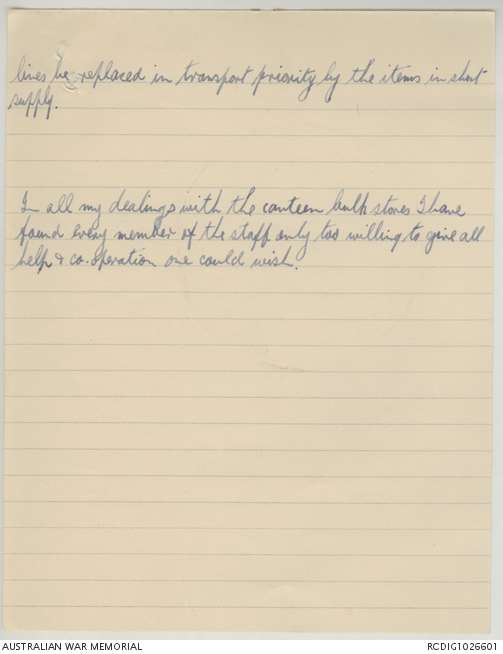 lines be replaced in transport priority by the items in short
supply.
In all my dealings with the canteen bulk stores I have
found every member of the staff only too willing to give all
help & co-operation one could wish.
AUSTRALIAN WAR MEMORIAL
RCDIG1026601